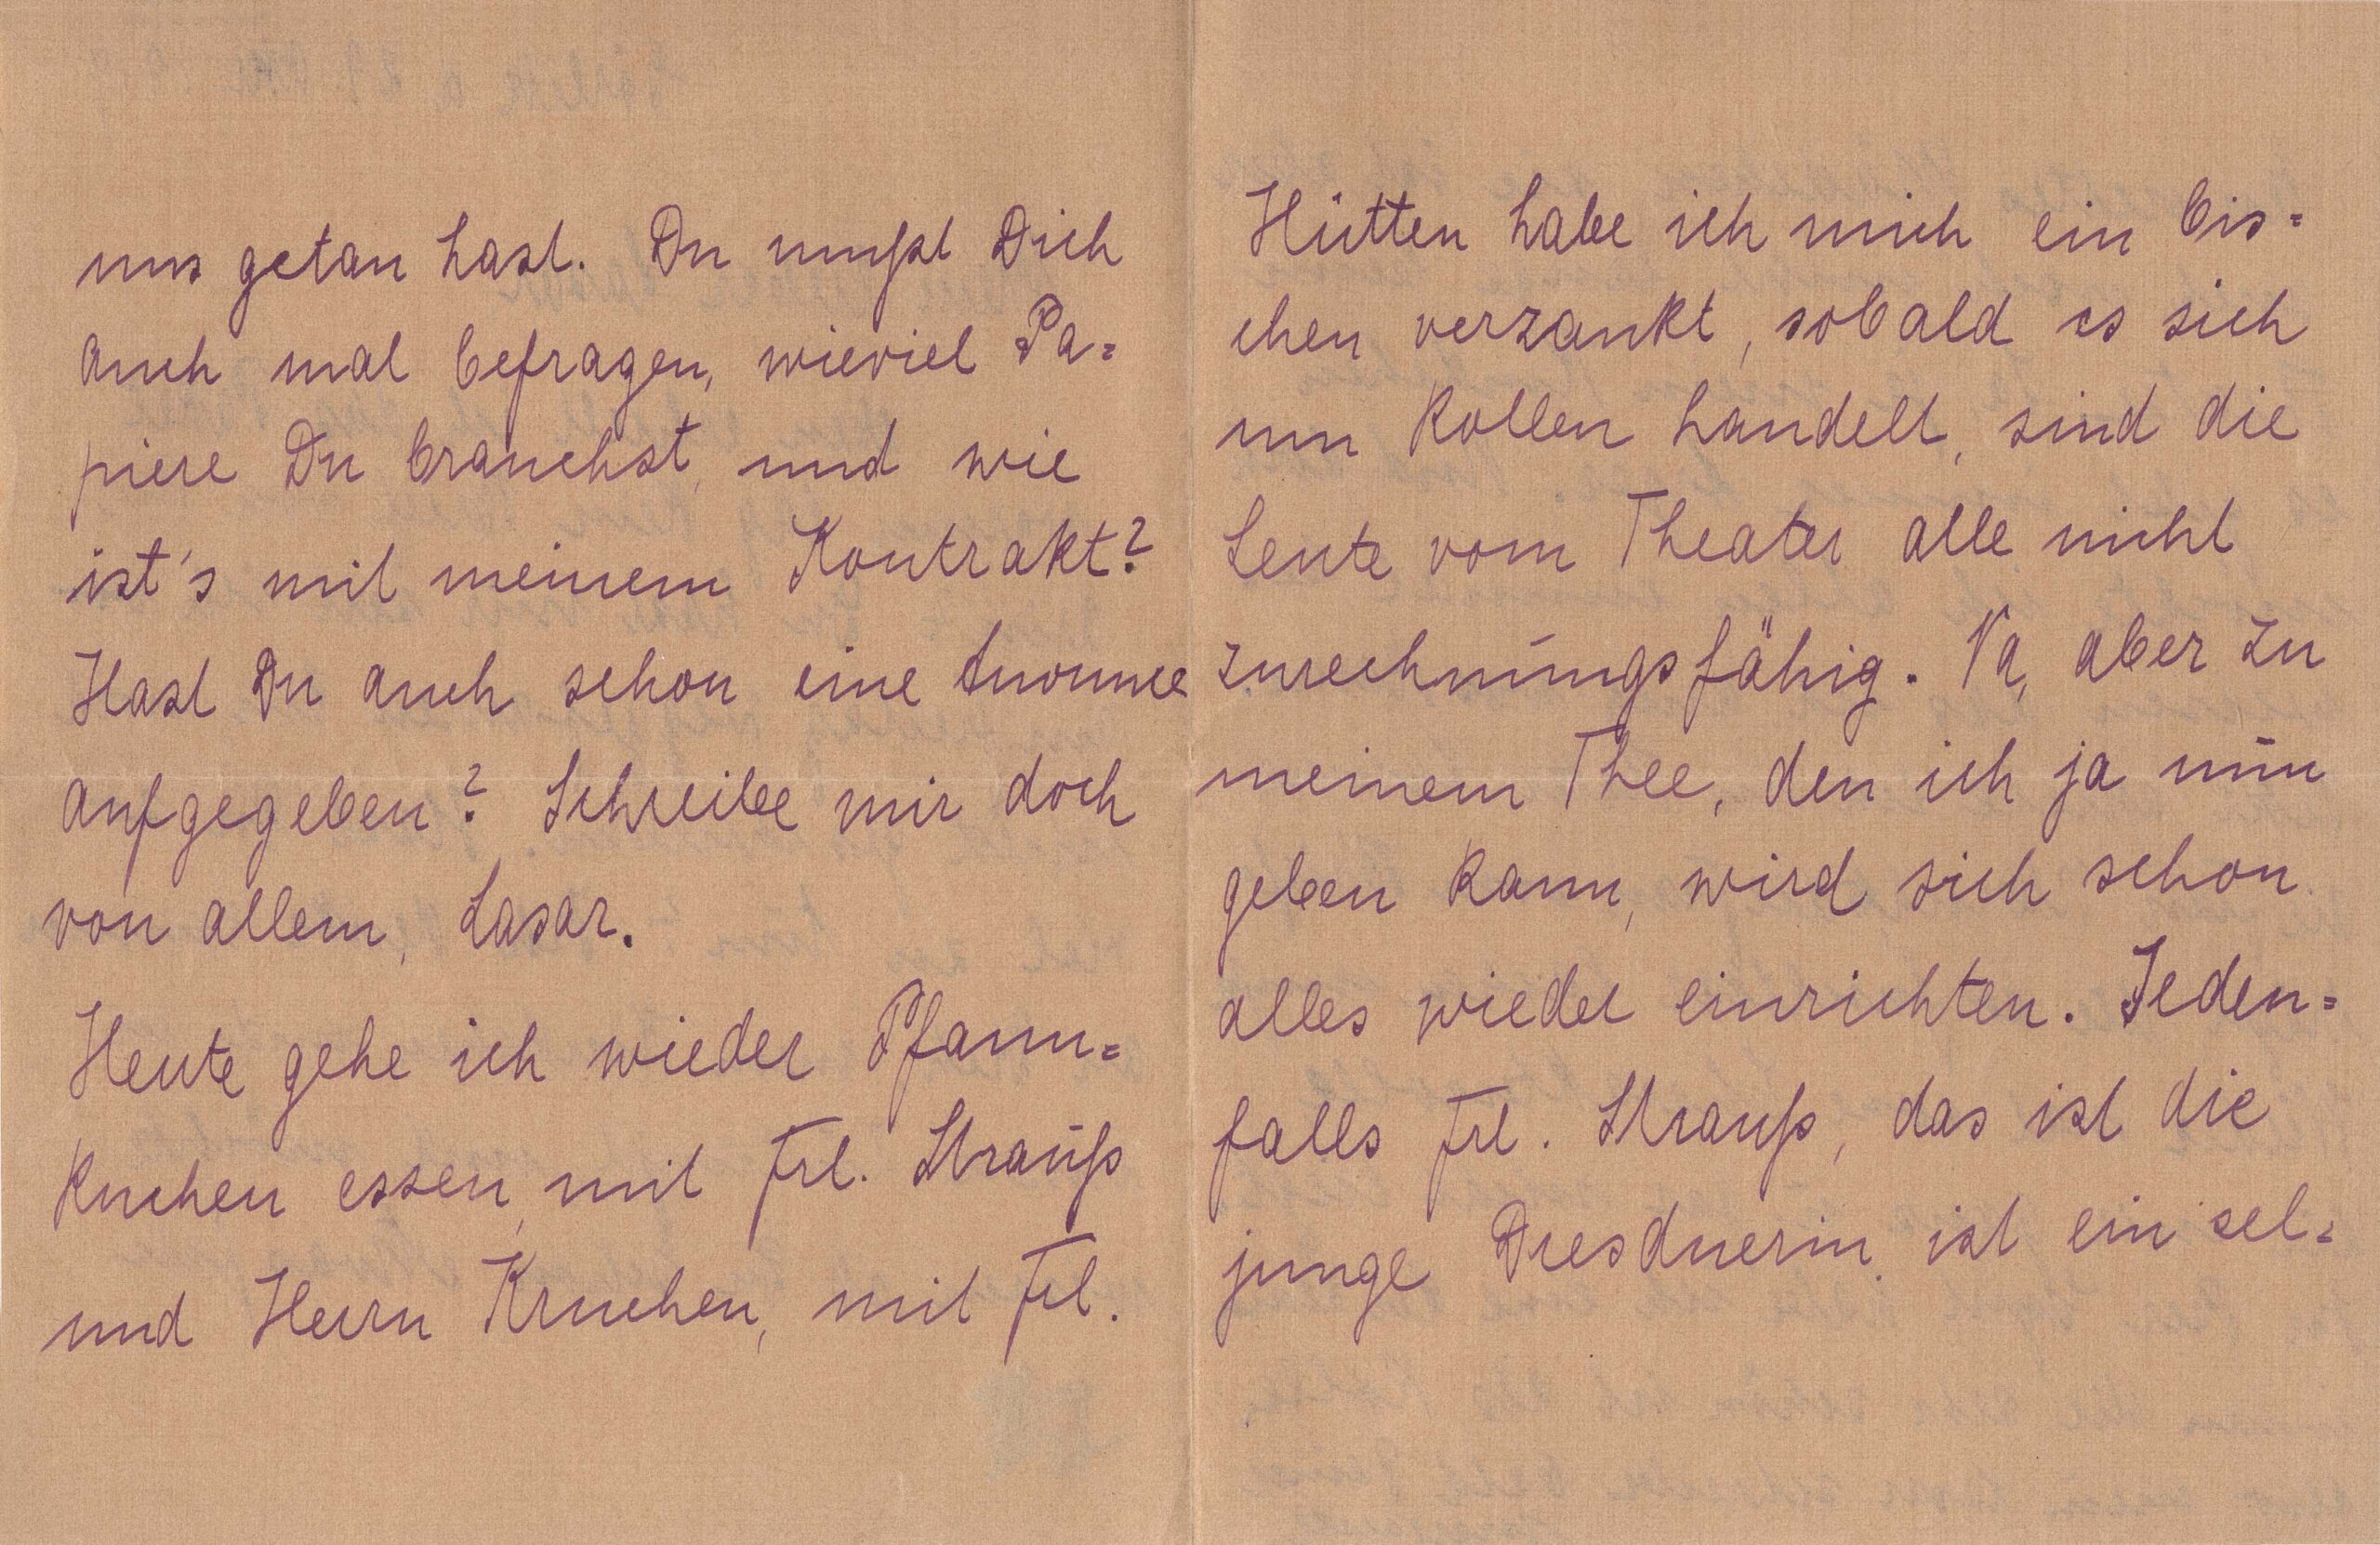 uns getan hast. Du mußt Dich
auch mal befragen, wieviel Pa=
piere Du brauchst, und wie
ist's mit meinem Kontrakt?
Hast Du auch schon eine Annonce
aufgegeben? Schreibe mir doch
von allem, Lasar.
Heute gehe ich wieder Pfann=
kuchen essen, mit Frl. Strauß
und Herrn Kruchen, mit Frl.
Hütten habe ich mich ein bis=
chen verzankt, sobald es sich
um Rollen handelt, sind die
Leute vom Theater alle nicht
zurechnungsfähig. Na, aber zu
meinem Thee, den ich ja nun
geben kann, wird sich schon
alles wieder einrichten. Jeden=
falls Frl. Strauß, das ist die
junge Dresdnerin, ist ein sel=